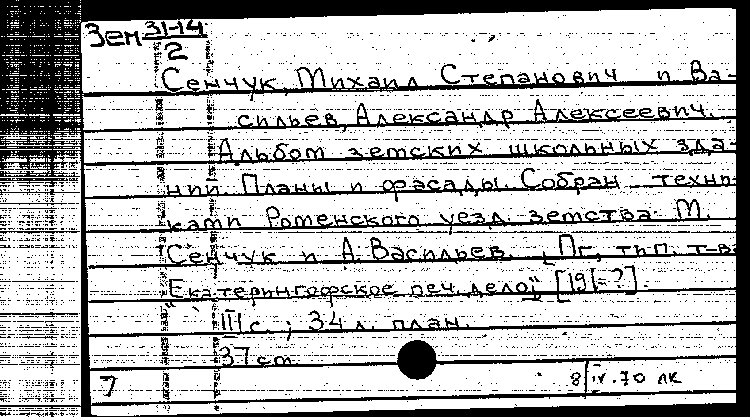 Зем 31-14
2
Сенчук, Михаил Степанович и Ва-
сильев, Александр Алексеевич.
Альбом земских школьных зда-
ний. Планы и фасады. Собран техни-
ками Роменского уезд. земства М.
Сенчук и А. Васильев. Пг, тип. т-ва
"Екатерингофское печ. дело", [191-?].
III с.; 34 л. план.
37 cm
7
8/IV.70 лк